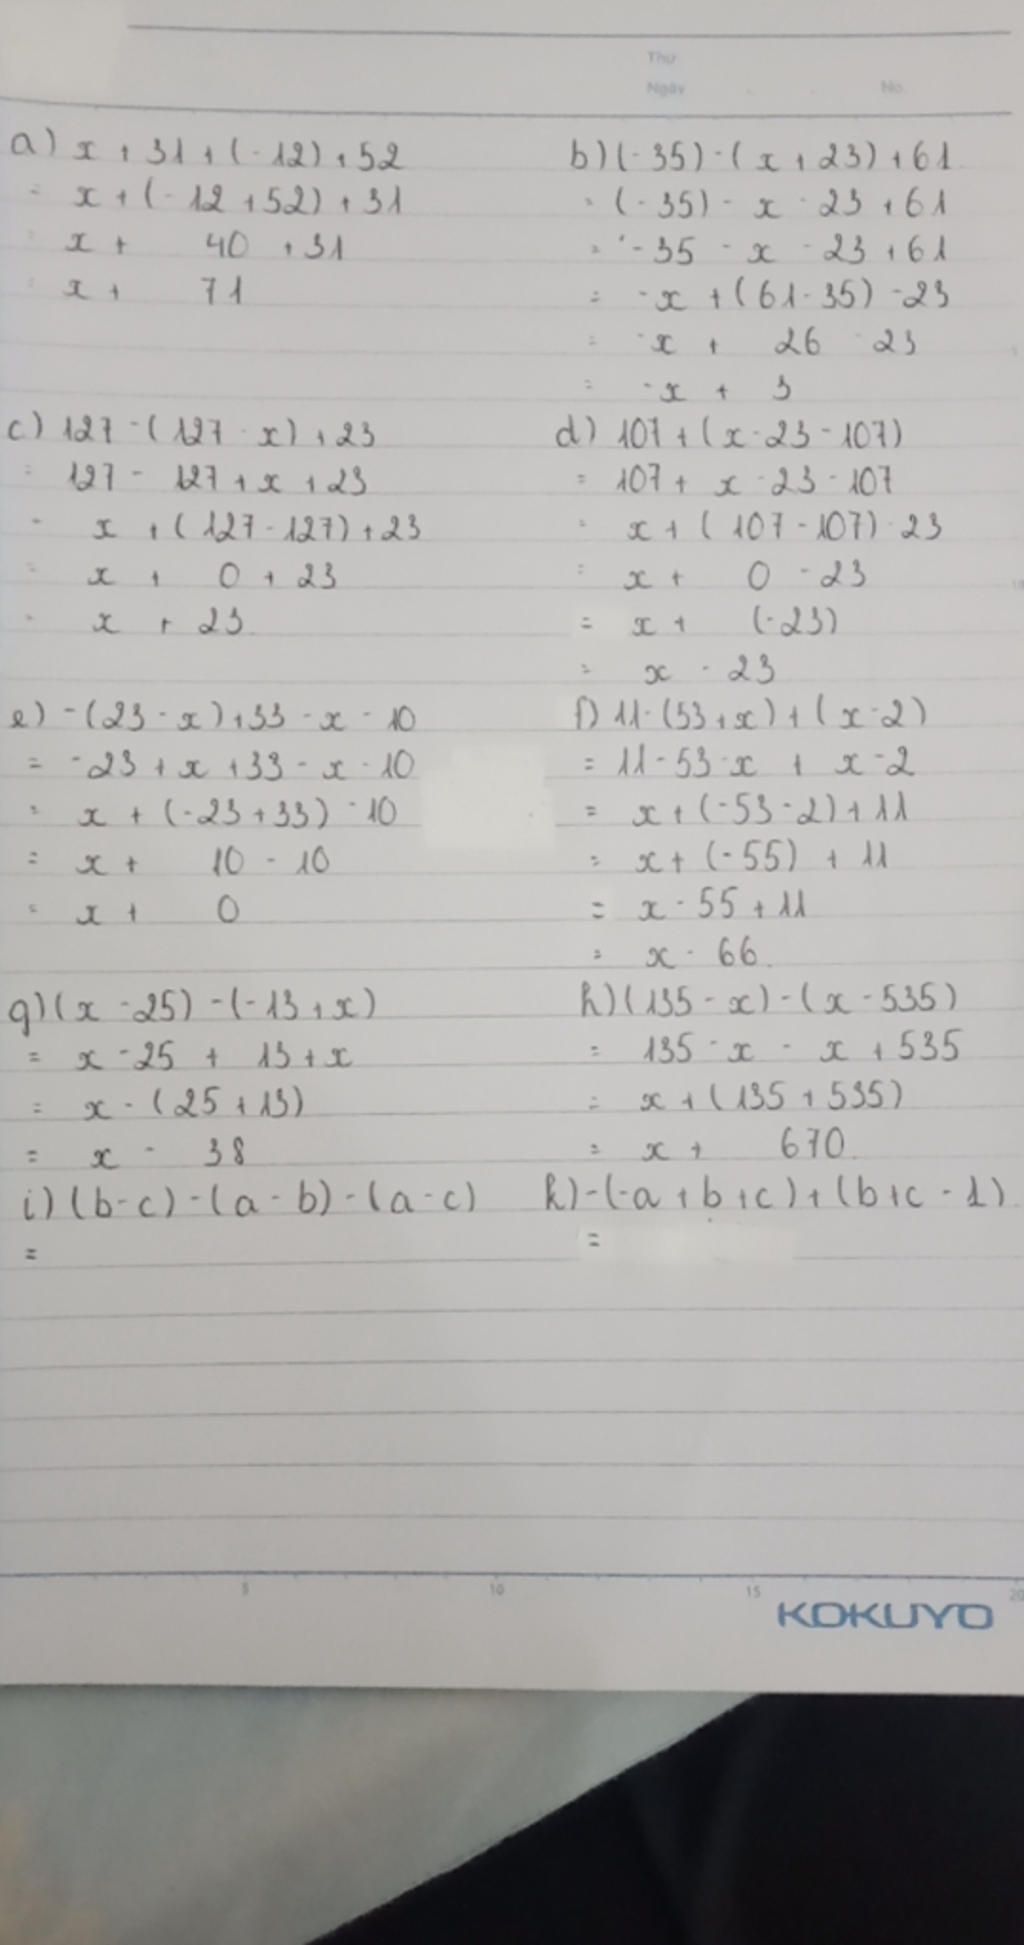 Thứ
Ngày
No.
a) x + 31 + (-12) + 52
= x + (-12 + 52) + 31
= x + 40 + 31
= x + 71
b) (-35) - (x + 23) + 61
= (-35) - x - 23 + 61
= -35 - x - 23 + 61
= -x + (61 - 35) - 23
= -x + 26 - 23
= -x + 3
c) 127 - (127 - x) + 23
= 127 - 127 + x + 23
= x + (127 - 127) + 23
= x + 0 + 23
= x + 23
d) 107 + (x - 23 - 107)
= 107 + x - 23 - 107
= x + (107 - 107) - 23
= x + 0 - 23
= x + (-23)
= x - 23
e) -(23 - x) + 33 - x - 10
= -23 + x + 33 - x - 10
= x + (-23 + 33) - 10
= x + 10 - 10
= x + 0
f) 11 - (53 + x) + (x - 2)
= 11 - 53 - x + x - 2
= x + (-53 - 2) + 11
= x + (-55) + 11
= x - 55 + 11
= x - 66.
g) (x - 25) - (-13 + x)
= x - 25 + 13 + x
= x - (25 + 13)
= x - 38
h) (135 - x) - (x - 535)
= 135 - x - x + 535
= x + (135 + 535)
= x + 670.
i) (b - c) - (a - b) - (a - c)
=
k) -(-a + b + c) + (b + c - 1)
=
5 10 15 20
KOKUYO